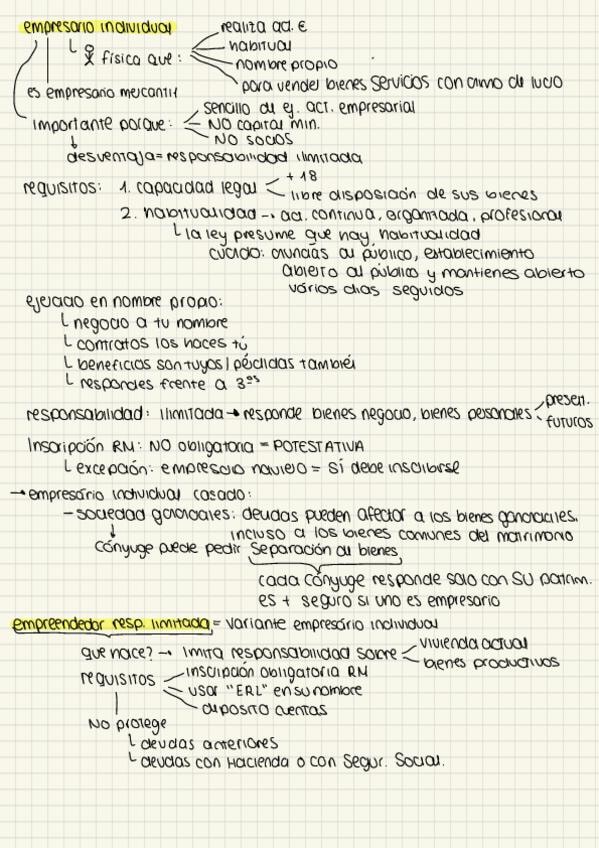 empresario individual
realiza act. €
habitual
física que:
nombre propio
para vender bienes servicios con animo de lucro
es empresario mercantil
importante porque:
sencillo de ej. act. empresarial
NO capital min.
NO socios
desventaja = responsabilidad ilimitada
requisitos: 1. capacidad legal
+ 18
libre disposición de sus bienes
2. habitualidad → act. continua, organizada, profesional
la ley presume que hay habitualidad
cuando: anuncias al público, establecimiento
abierto al público y mantienes abierto
vários dias seguidos
ejercicio en nombre propio:
negocio a tu nombre
contratos los haces tú
beneficios son tuyos / pérdidas también
respondes frente a 3ºs
responsabilidad: ilimitada → responde bienes negocio, bienes personales
presen.
futuros
Inscripción RM: NO obligatoria = POTESTATIVA
excepción: empresario naviero = sí debe inscribirse
→ empresário individual casado:
- sociedad gananciales: deudas pueden afectar a los bienes gananciales.
incluso a los bienes comunes del matrimonio
Cónyuge puede pedir separación de bienes
cada cónyuge responde solo con SU patrim.
es + seguro si uno es empresario
empreendedor resp. limitada = variante empresário individual
que hace? → limita responsabilidad sobre
vivienda actual
bienes productivos
requisitos
inscripción obligatoria RM
usar "ERL" en su nombre
deposito cuentas
No protege
deudas anteriores
deudas con Hacienda o con Segur. Social.